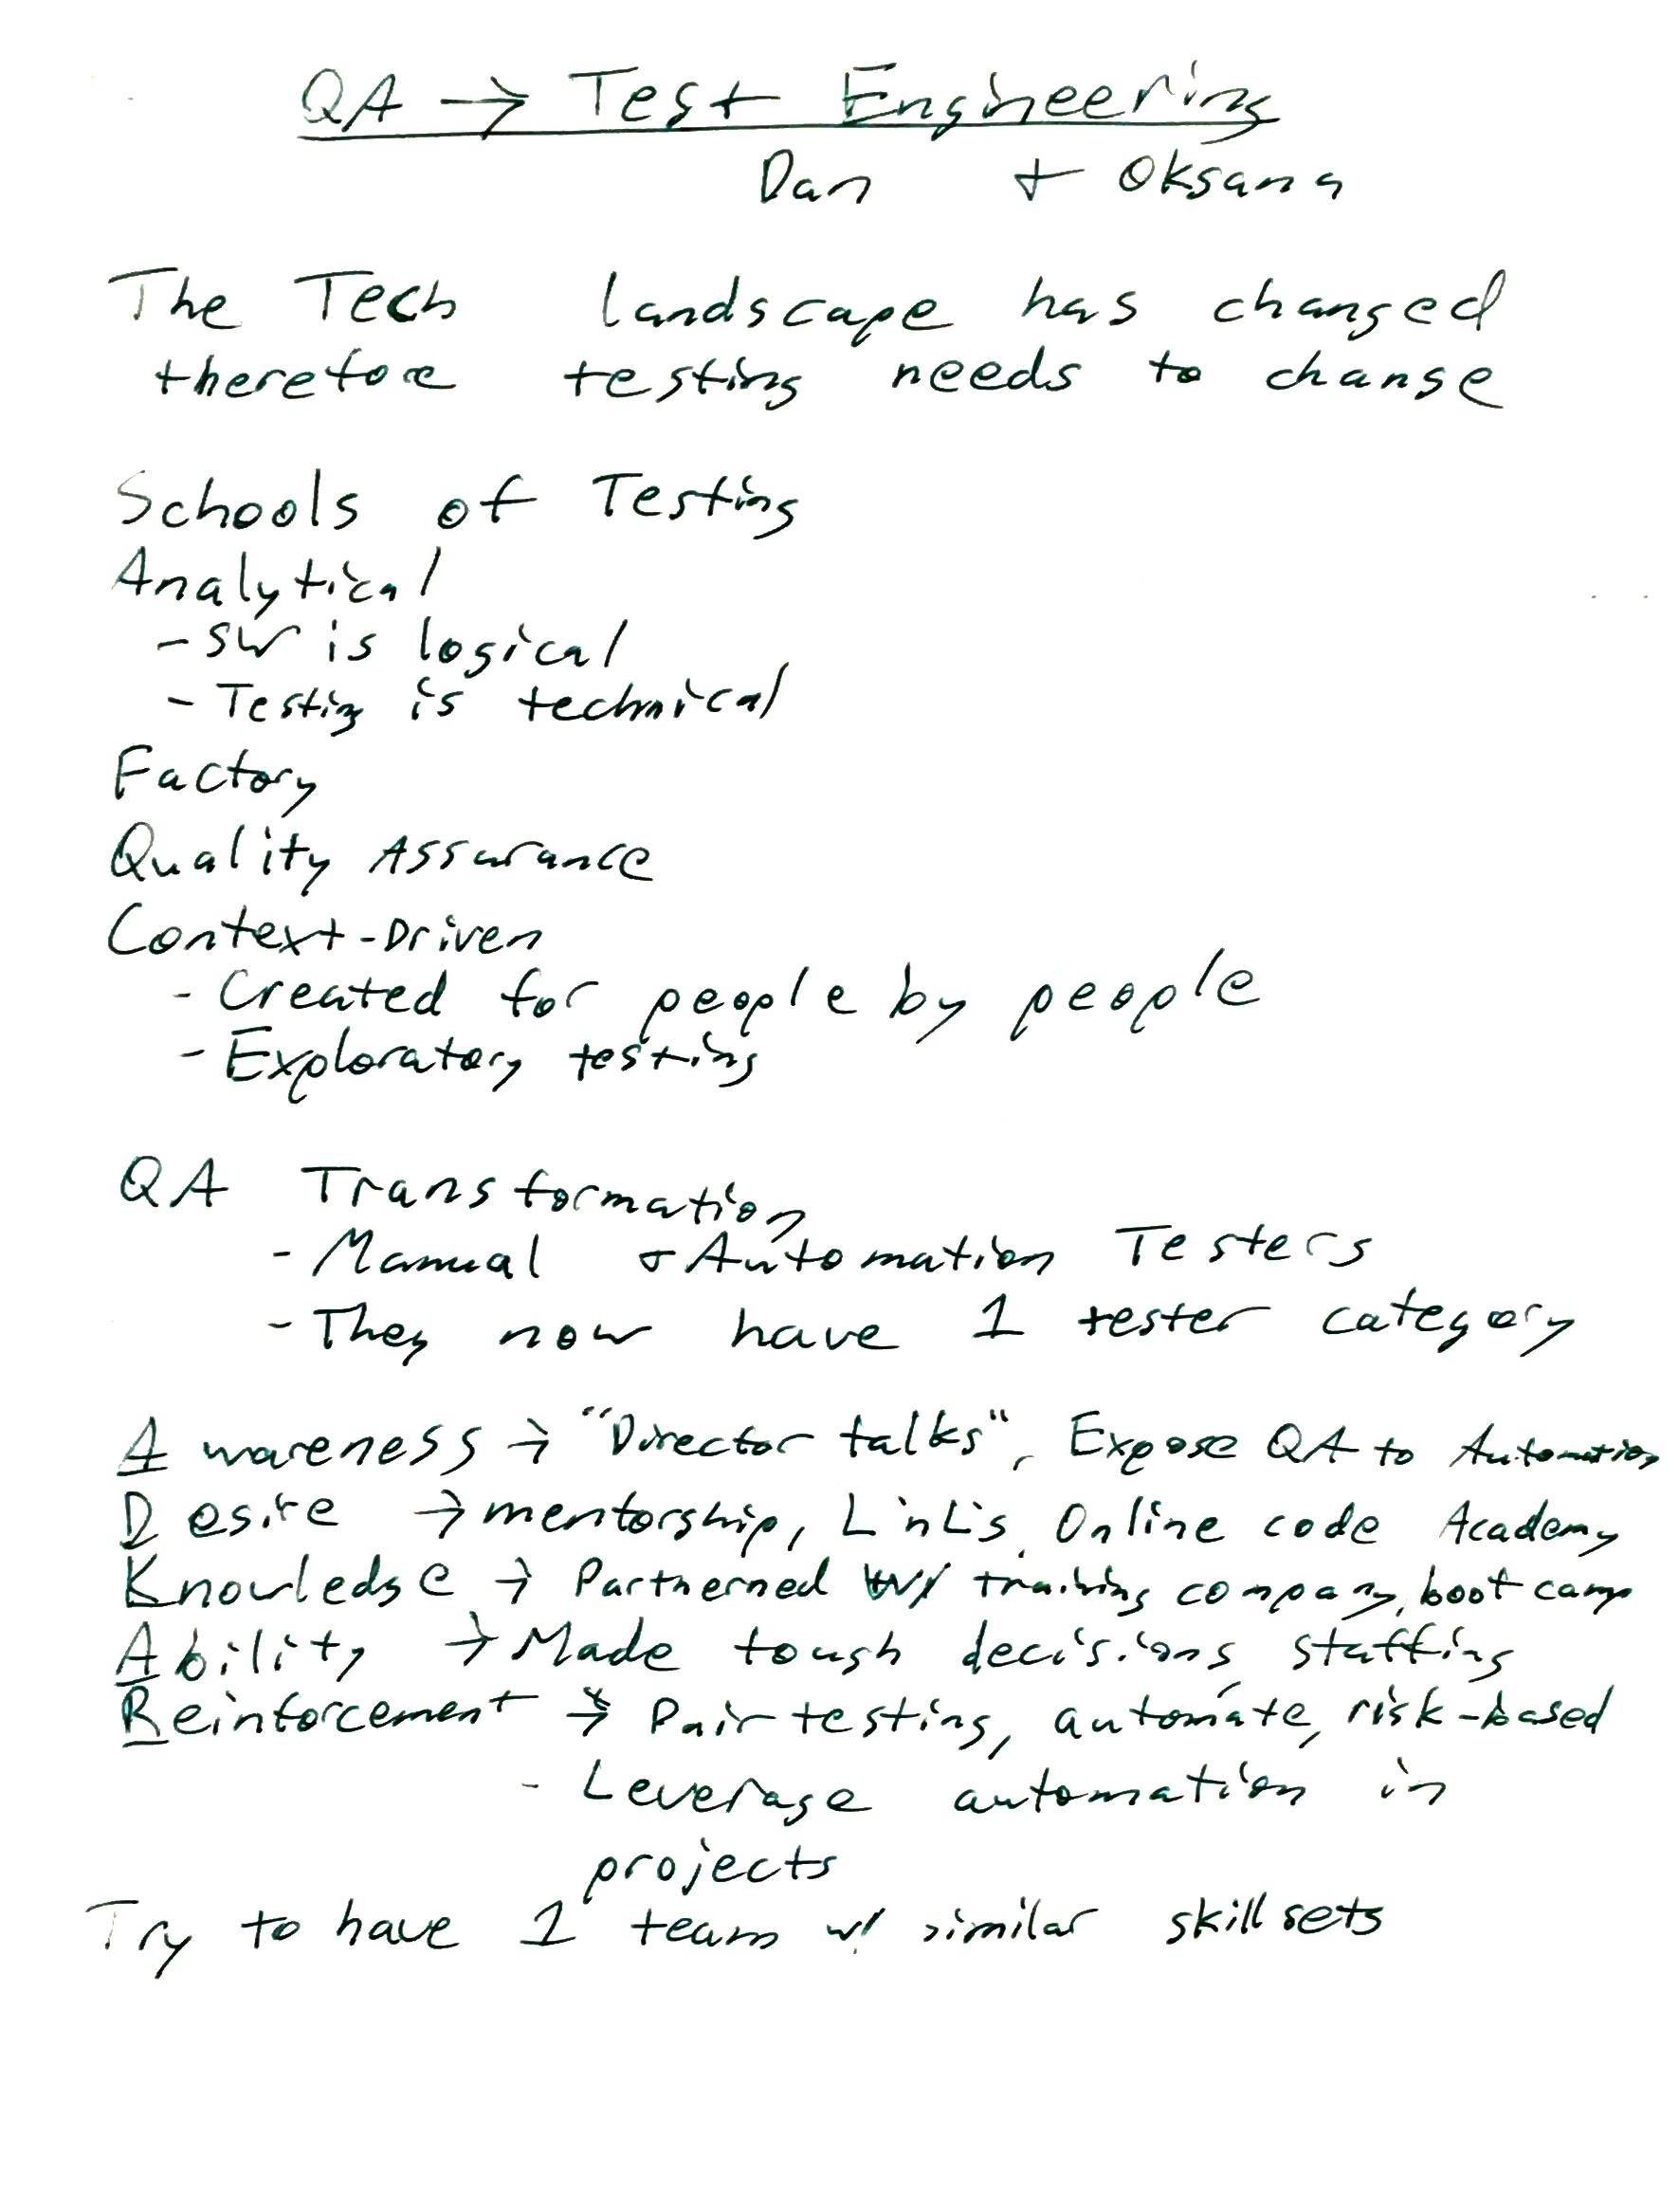 QA → Test Engineering
Dan + Oksana
The Tech landscape has changed
therefore testing needs to change
Schools of Testing
Analytical
- SW is logical
- Testing is technical
Factory
Quality Assurance
Context-Driven
- Created for people by people
- Exploratory testing
QA Transformation
- Manual + Automation Testers
- They now have 1 tester category
Awareness → "Director talks", Expose QA to Automation
Desire → mentorship, LnL's, Online code Academy
Knowledge → Partnerned w/ training company, boot camp
Ability → Made tough decisions, staffing
Reinforcement → Pair testing, automate, risk-based
- Leverage automation in
projects
Try to have 1 team w/ similar skillsets